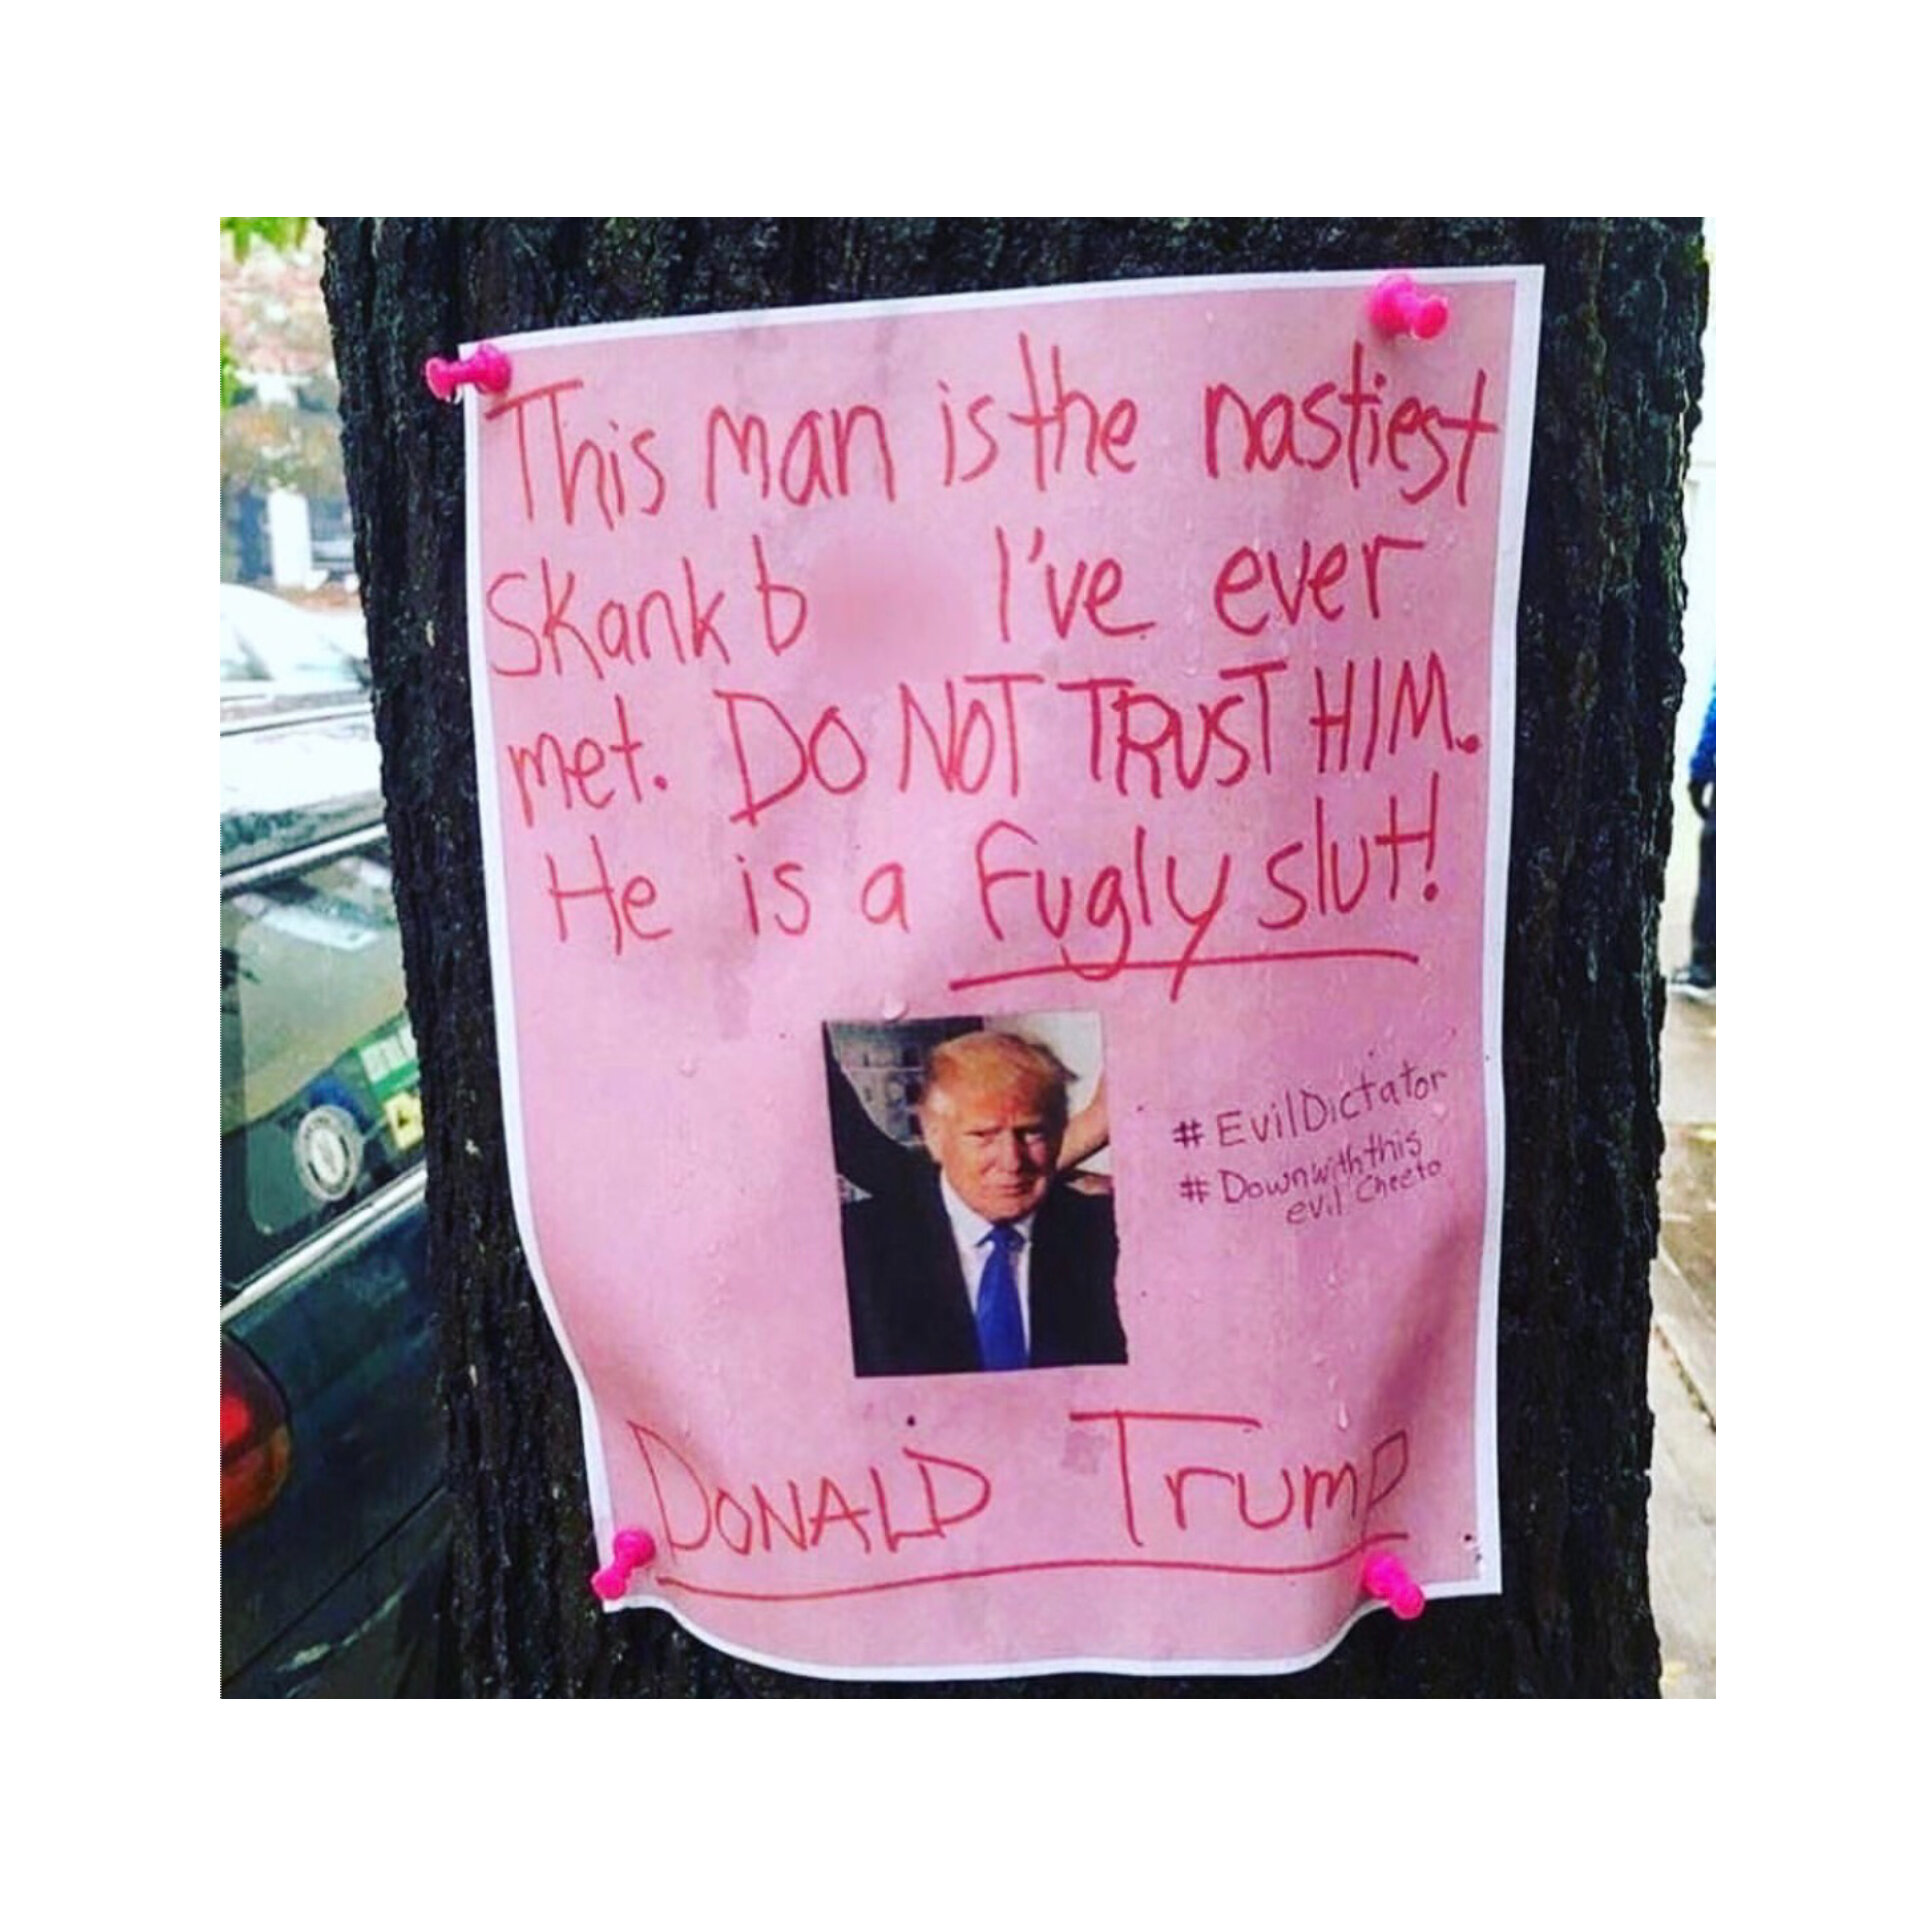 This man is the nastiest
Skank b I've ever
met. DO NOT TRUST HIM.
He is a fugly slut!
#EvilDictator
#Downwiththis
evil Cheeto
DONALD Trump